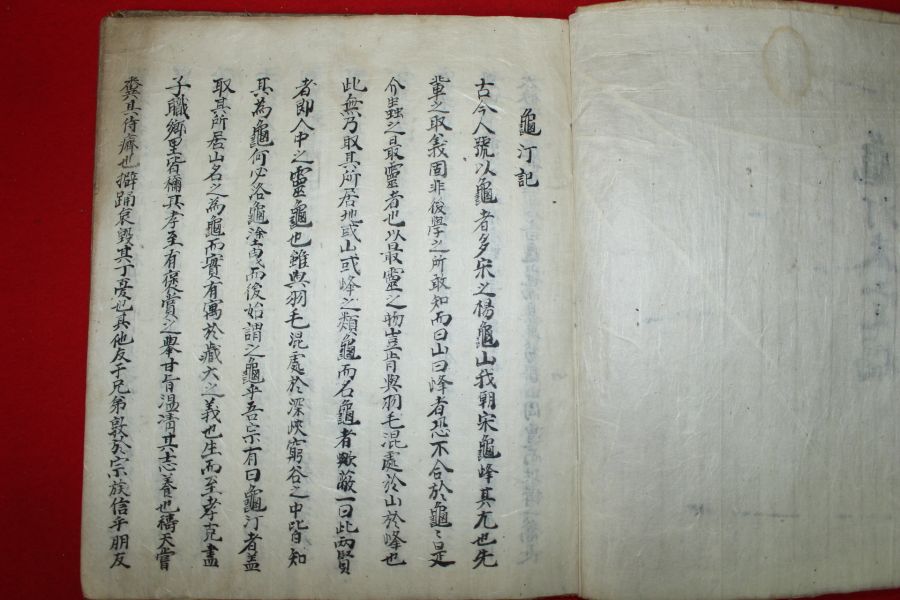 龜汀記
古今人號以龜者多宋之楊龜山我朝宋龜峰其尤也先
輩之取義固非後學之所敢知而曰山曰峰者恐不合於龜〻是
介蟲之最靈者也以最靈之物豈肯與羽毛混處於山於峰也
此無乃取其所居地或山或峰之類龜而名龜者歟蔽一曰此兩賢
者即人中之靈龜也雖與羽毛混處於深峽窮谷之中皆知
其為龜何必洛龜塗曳而後始謂之龜乎吾宗有曰龜汀者盖
取其所居山名之為龜而實有寓於藏六之義也生而至孝克盡
子職鄉里皆稱其孝至有褒賞之擧甘旨溫凊其志養也禱天嘗
糞其侍癠也擗踊哀毀其丁憂也其他友于兄弟敦於宗族信乎朋友